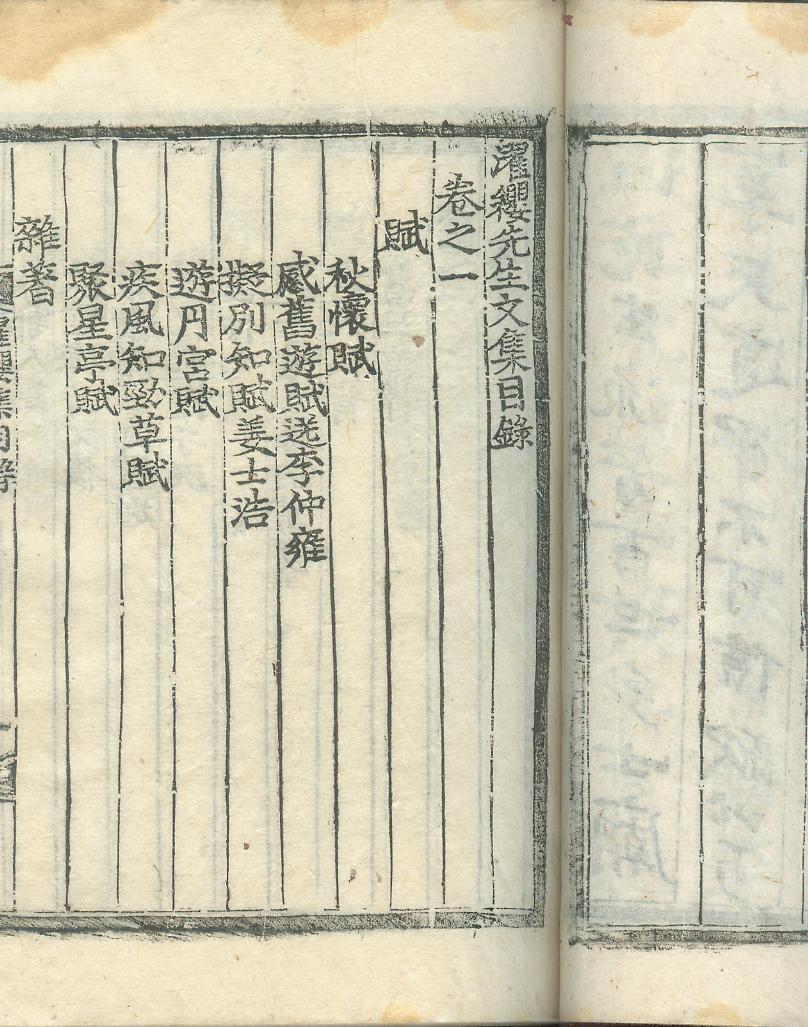 濯纓先生文集目錄
卷之一
賦
秋懷賦
感舊遊賦送李仲雍
擬別知賦姜士浩
遊月宮賦
疾風知勁草賦
聚星亭賦
雜著